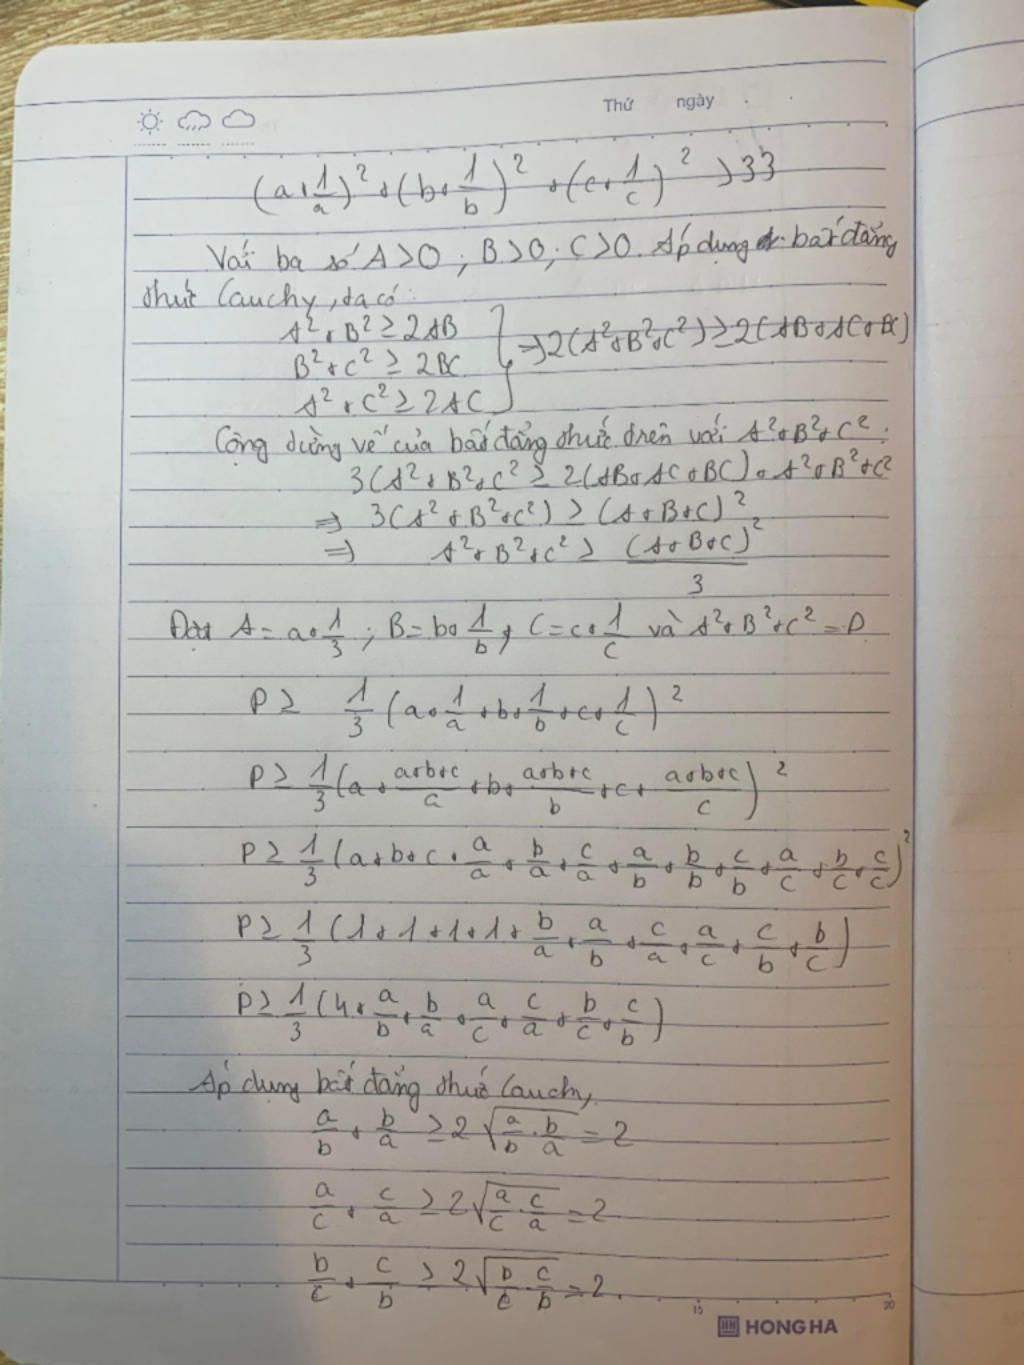 Thứ ngày
(a+1/a)² + (b+1/b)² + (c+1/c)² > 33
Với ba số A>0 ; B>0 ; C>0. Áp dụng bất đẳng
thức Cauchy, ta có:
A² + B² ≥ 2AB
B² + C² ≥ 2BC
⇒ 2(A²+B²+C²) ≥ 2(AB+AC+BC)
A² + C² ≥ 2AC
Cộng từng vế của bất đẳng thức trên với A²+B²+C² :
3(A² + B² + C² ≥ 2(AB+AC+BC) + A²+B²+C²
⇒ 3(A² + B² + C²) ≥ (A+B+C)²
⇒ A² + B² + C² ≥ (A+B+C)²/3
Đặt A = a+1/3 ; B = b+1/b ; C = c+1/c và A²+B²+C² = P
P ≥ 1/3 (a+1/a + b+1/b + c+1/c)²
P ≥ 1/3 (a + a+b+c/a + b + a+b+c/b + c + a+b+c/c)²
P ≥ 1/3 (a+b+c + a/a + b/a + c/a + a/b + b/b + c/b + a/c + b/c + c/c)²
P ≥ 1/3 (1+1+1+1+ b/a + a/b + c/a + a/c + c/b + b/c)
P ≥ 1/3 (4 + a/b + b/a + a/c + c/a + b/c + c/b)
Áp dụng bất đẳng thức Cauchy
a/b + b/a ≥ 2√(a/b . b/a) = 2
a/c + c/a ≥ 2√(a/c . c/a) = 2
b/c + c/b ≥ 2√(b/c . c/b) = 2
15 20
HONG HA